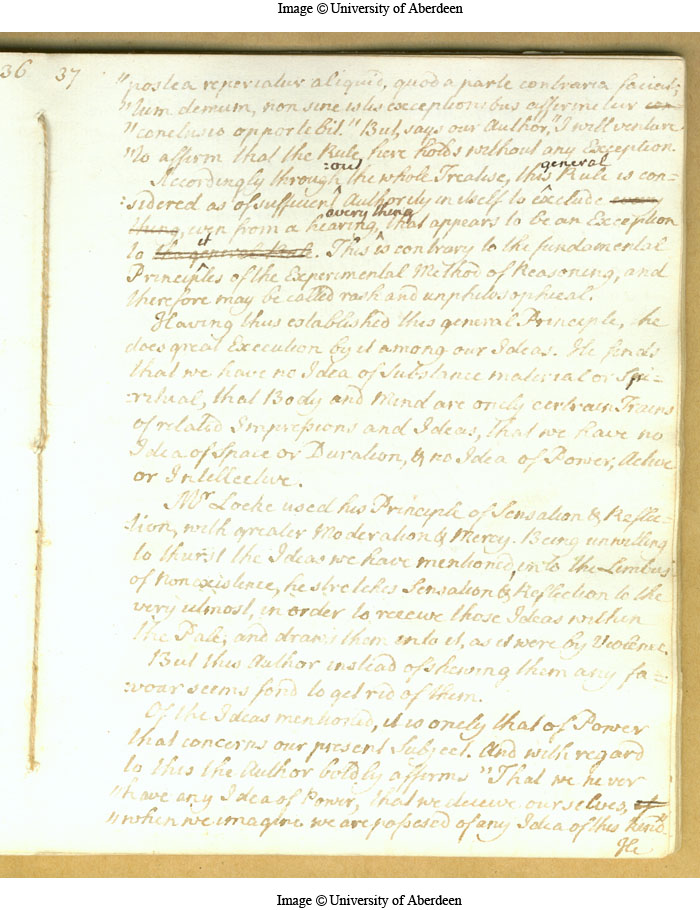 Image © University of Aberdeen
36 37
"postea reperiatur aliquid, quod a parte contraria faciat;
"tum demum, non sine istis exceptionibus affirmetur con-
"conclusio opportebit." But, says our Author, "I will venture
"to affirm that the Rule here holds without any Exception.
:out general
Accordingly through the whole Treatise, this Rule is con-
:sidered as of sufficient Authority in itself to exclude every
every thing
thing, even from a hearing, that appears to be an Exception
it
to the general Rule. This is contrary to the fundamental
Principles of the Experimental Method of Reasoning, and
therefore may be called rash and unphilosophical.
Having thus established this general Principle, he
does great Execution by it among our Ideas. He finds
that we have no Idea of Substance material or Spi-
:ritual, that Body and Mind are onely certain Trains
of related Impressions and Ideas, that we have no
Idea of Space or Duration, & no Idea of Power, Active
or Intellective.
Mr Locke used his Principle of Sensation & Reflec-
tion, with greater Moderation & Mercy. Being unwilling
to thurst the Ideas we have mentioned, into the Limbus
of Nonexistence, he stretches Sensation & Reflection to the
very utmost, in order to receive those Ideas within
the Pale, and draws them into it, as it were by Violence.
But this Author instead of shewing them any fa-
:vour seems fond to get rid of them.
Of the Ideas mentioned, it is onely that of Power
that concerns our present Subject. And with regard
to this the Author boldly affirms "That we never
"have any Idea of Power, that we deceive ourselves, if
"when we imagine we are possesed of any Idea of this kind."
He
Image © University of Aberdeen